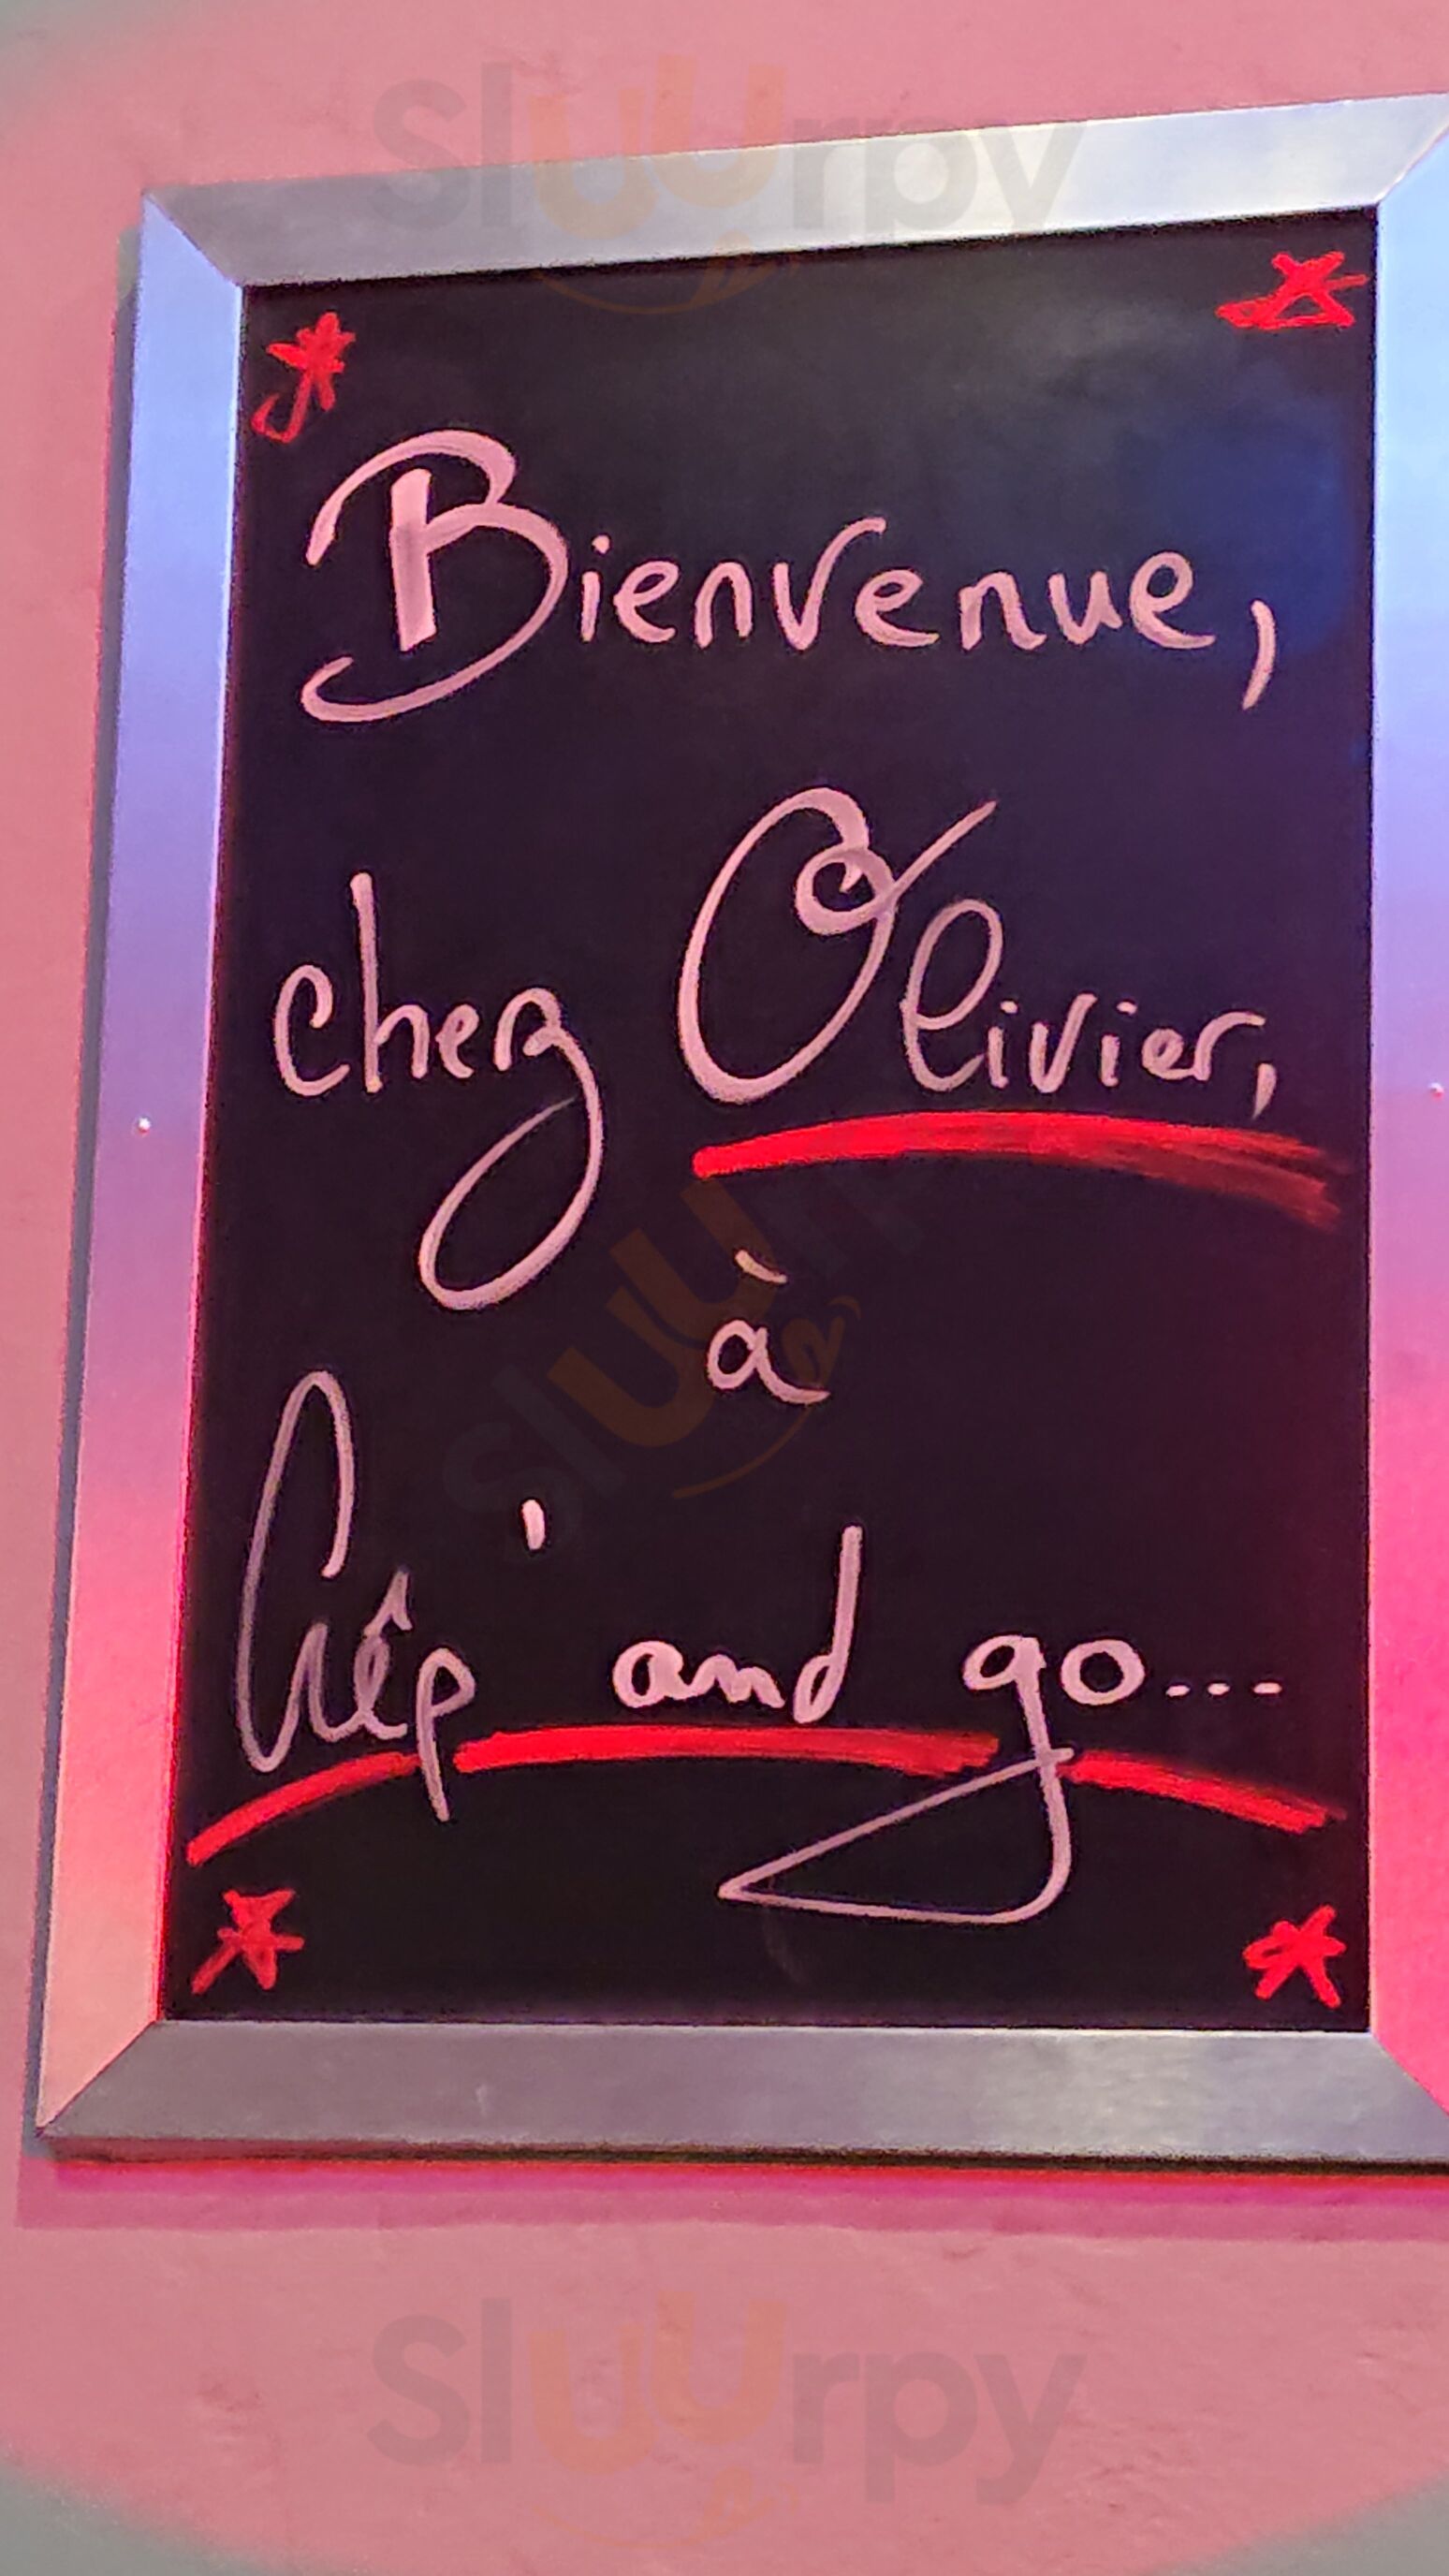 Sluurpy
Bienvenue,
chez Olivier,
à
Sluurpy
Crêp' and go...
Sluurpy